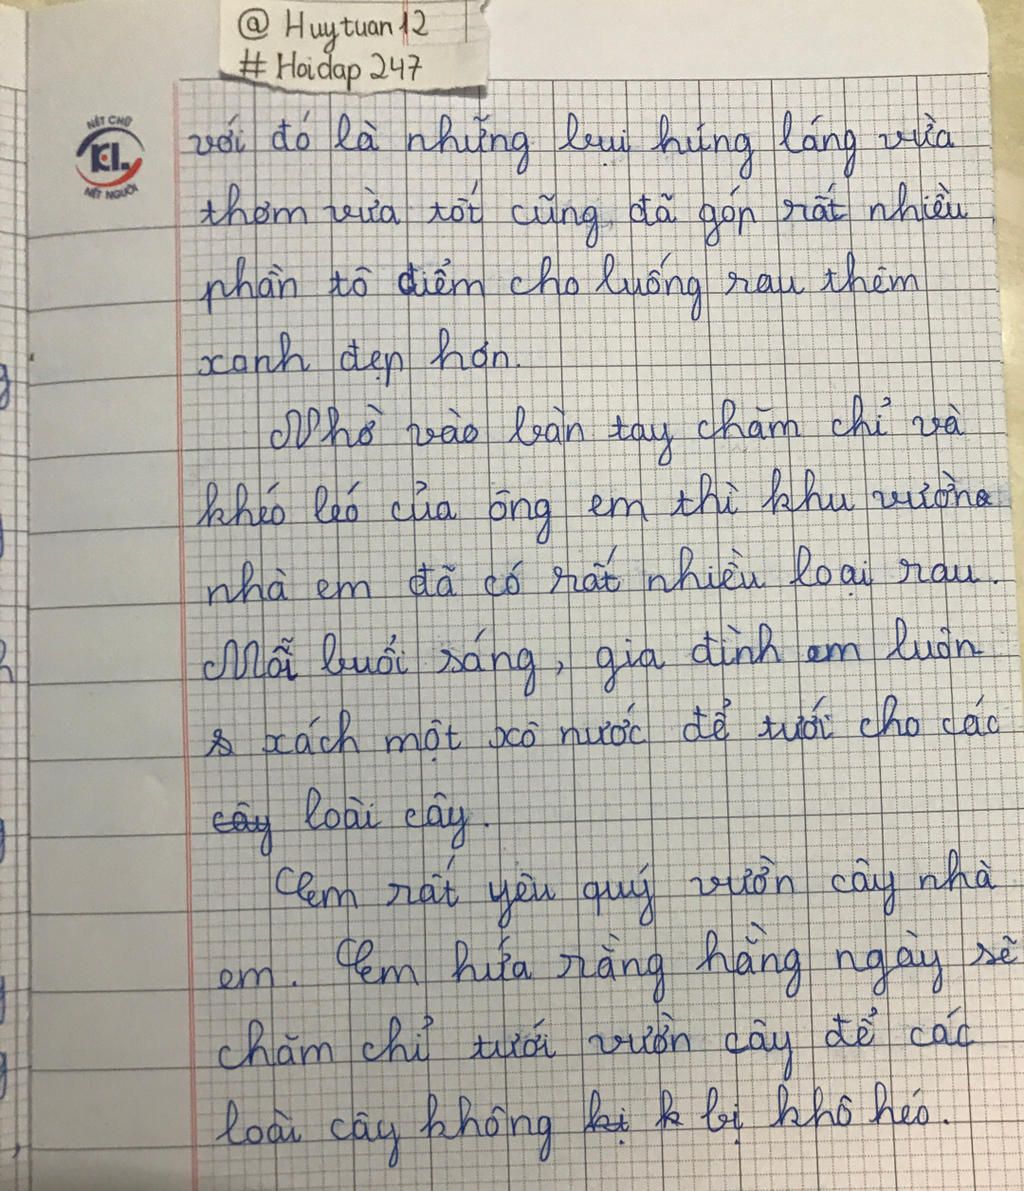 @ Huytuan12
# Hoidap 247
NÉT CHỮ
KL.
NẾT NGƯỜI
với đó là những bụi húng láng vừa
thơm vừa tốt cũng đã góp rất nhiều
phần tô điểm cho luống rau thêm
xanh đẹp hơn.
Nhờ vào bàn tay chăm chỉ và
khéo léo của ông em thì khu vườn
nhà em đã có rất nhiều loại rau.
Mỗi buổi sáng, gia đình em luôn
xách một xô nước để tưới cho các
cây loài cây.
Em rất yêu quý vườn cây nhà
em. Em hứa rằng hằng ngày sẽ
chăm chỉ tưới vườn cây để các
loài cây không bị khô héo.